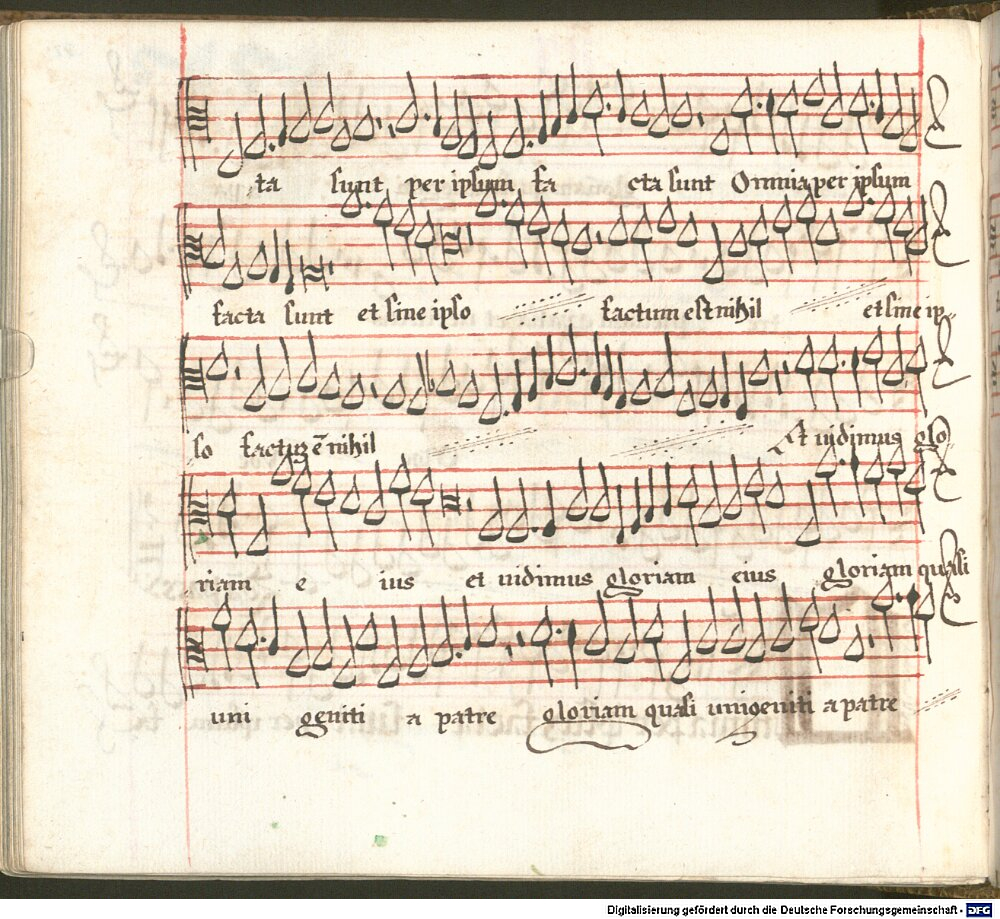 ta sunt per ipsum fa cta sunt Omnia per ipsum
facta sunt et sine ipso factum est nihil et sine ip
so factuz ē nihil Et uidimus glo
riam e ius et uidimus gloriam eius gloriam quasi
uni geniti a patre gloriam quasi unigeniti a patre
Digitalisierung gefördert durch die Deutsche Forschungsgemeinschaft - DFG